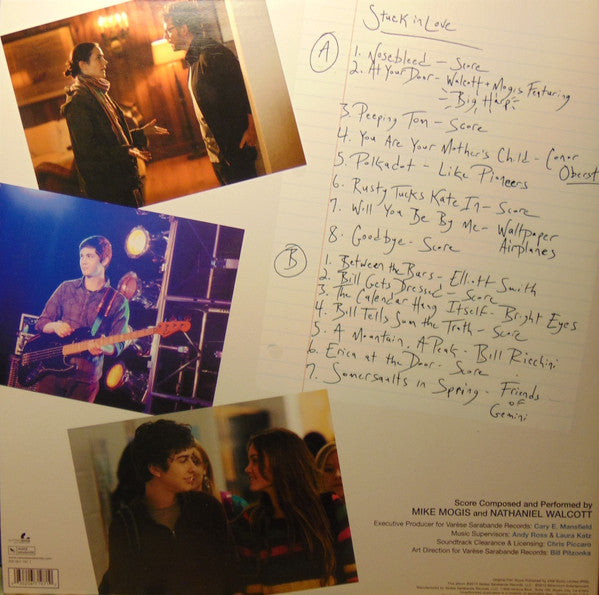 Stuck in Love
A
1. Nosebleed - Score
2. At Your Door - Walcott + Mogis Featuring
Big Harp
3. Peeping Tom - Score
4. You Are Your Mother's Child - Conor
Oberst
5. Polkadot - Like Pioneers
6. Rusty Tucks Kate In - Score
7. Will You Be By Me - Wallpaper
Airplanes
8. Goodbye - Score
B
1. Between the Bars - Elliott Smith
2. Bill Gets Dressed - Score
3. The Calendar Hung Itself - Bright Eyes
4. Bill Tells Sam the Truth - Score
5. A Mountain, A Peak - Bill Ricchini
6. Erica at the Door - Score
7. Somersaults in Spring - Friends
of
Gemini
Score Composed and Performed by
MIKE MOGIS and NATHANIEL WALCOTT
Executive Producer for Varèse Sarabande Records: Cary E. Mansfield
Music Supervisors: Andy Ross & Laura Katz
Soundtrack Clearance & Licensing: Chris Piccaro
Art Direction for Varèse Sarabande Records: Bill Pitzonka